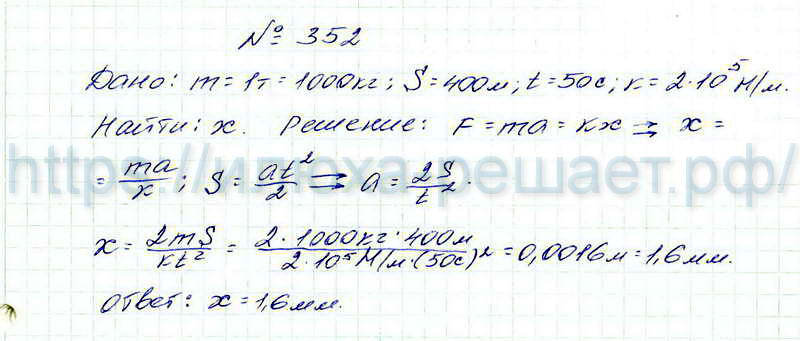 № 352
Дано: m = 1т = 1000кг; S = 400м; t = 50с; к = 2·10⁵ Н/м.
Найти: x. Решение: F = ma = кx ⇒ x =
= ma/x; S = at²/2 ⇒ a = 2S/t².
https://илюха-решает.рф/
x = 2mS/кt² = 2·1000кг·400м/2·10⁵Н/м·(50с)² = 0,0016м = 1,6мм.
Ответ: x = 1,6мм.